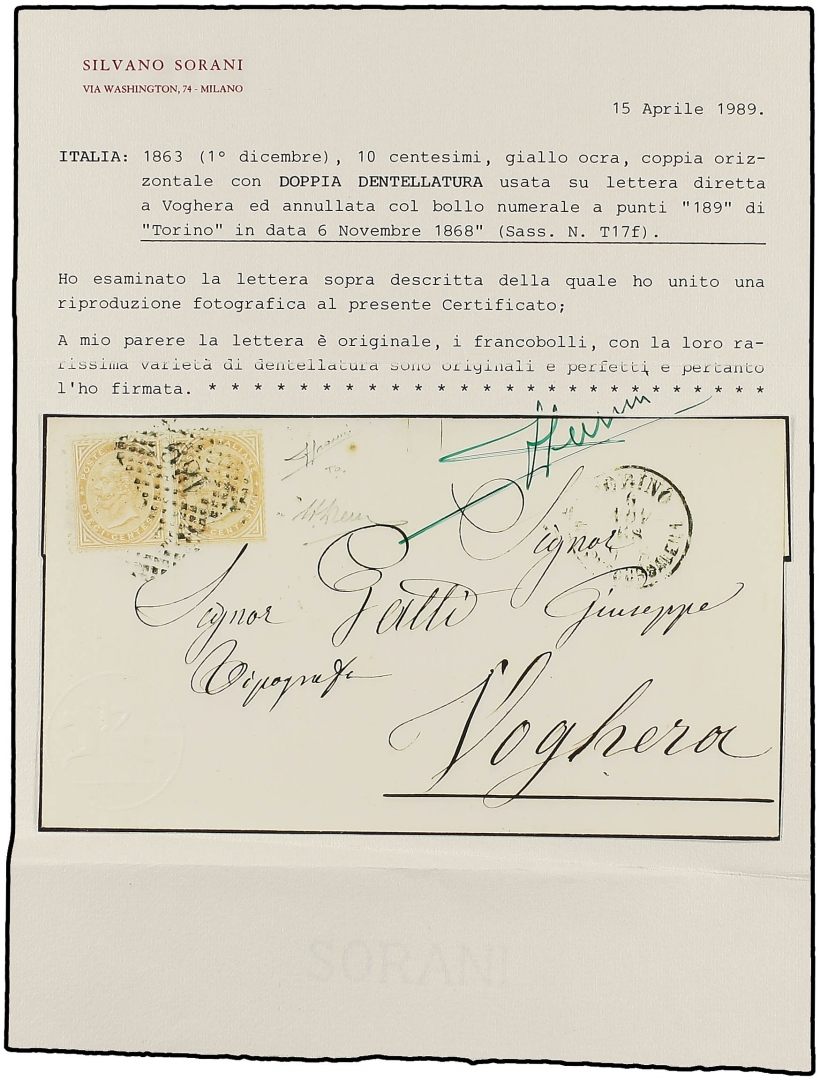 SILVANO SORANI
VIA WASHINGTON, 74 - MILANO
15 Aprile 1989.
ITALIA: 1863 (1° dicembre), 10 centesimi, giallo ocra, coppia oriz-
zontale con DOPPIA DENTELLATURA usata su lettera diretta
a Voghera ed annullata col bollo numerale a punti "189" di
"Torino" in data 6 Novembre 1868" (Sass. N. T17f).
Ho esaminato la lettera sopra descritta della quale ho unito una
riproduzione fotografica al presente Certificato;
A mio parere la lettera è originale, i francobolli, con la loro ra-
rissima varietà di dentellatura sono originali e perfetti e pertanto
l'ho firmata. * * * * * * * * * * * * * * * * * * * * * * * * *
Signor
Signor Gatti Giuseppe
Tipografo
Voghera
SORANI